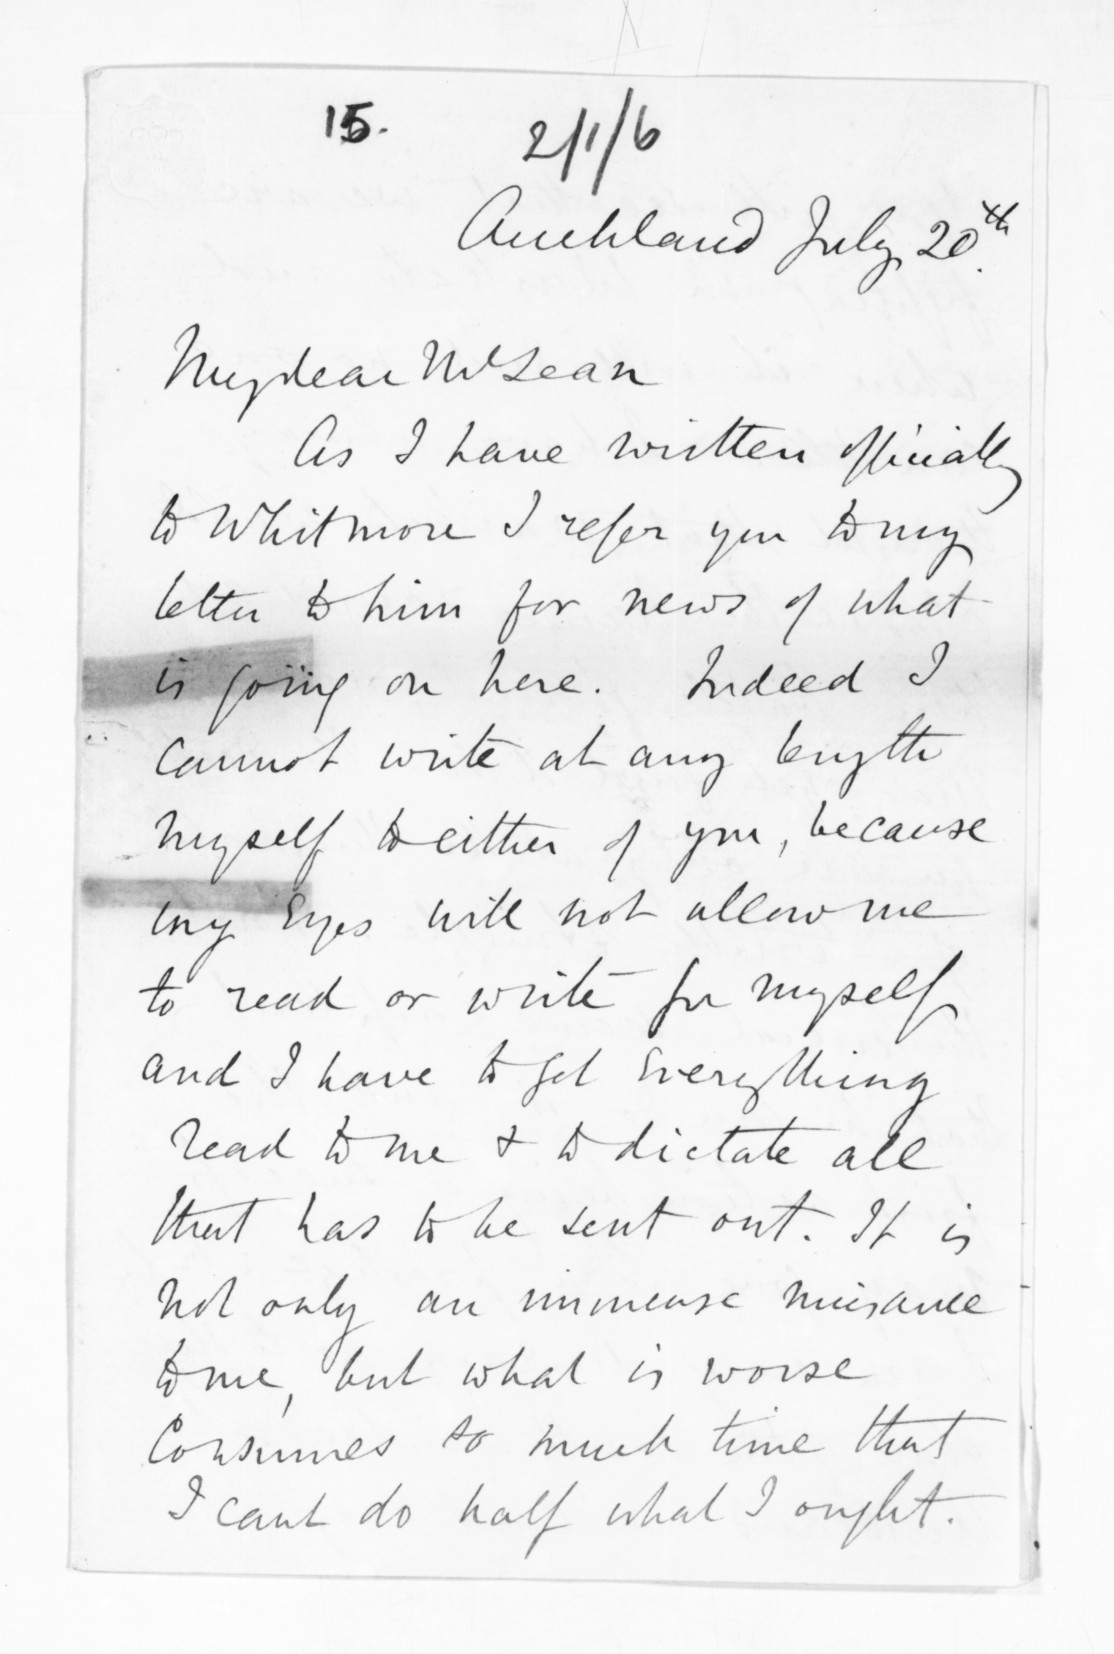 15.
2/1/6
Auckland July 20th.
My dear McLean
As I have written officially
to Whitmore I refer you to my
letter to him for news of what
is going on here. Indeed I
cannot write at any length
myself to either of you, because
my Eyes will not allow me
to read or write for myself
and I have to get Everything
read to me & to dictate all
that has to be sent out. It is
not only an immense nuisance
to me, but what is worse
Consumes so much time that
I cant do half what I ought.